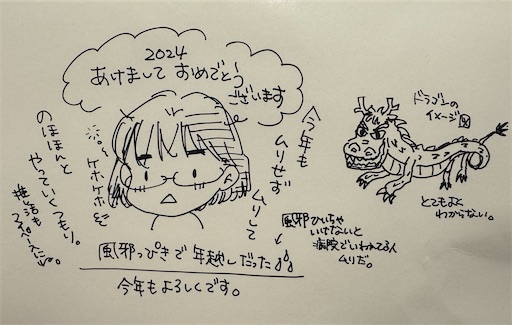 2024
あけまして おめでとう
ございます
今年も
ムリせず
ムリして
のほほんと
やっていくつもり。
推し活も
マイペースに。
ケホケホ
風邪っぴきで 年越しだった
今年もよろしくです。
風邪ひいちゃ
いけないと
病院でいわれてる人
ムリだ。
ドラゴンの
イメージ図
とてもよく
わからない。